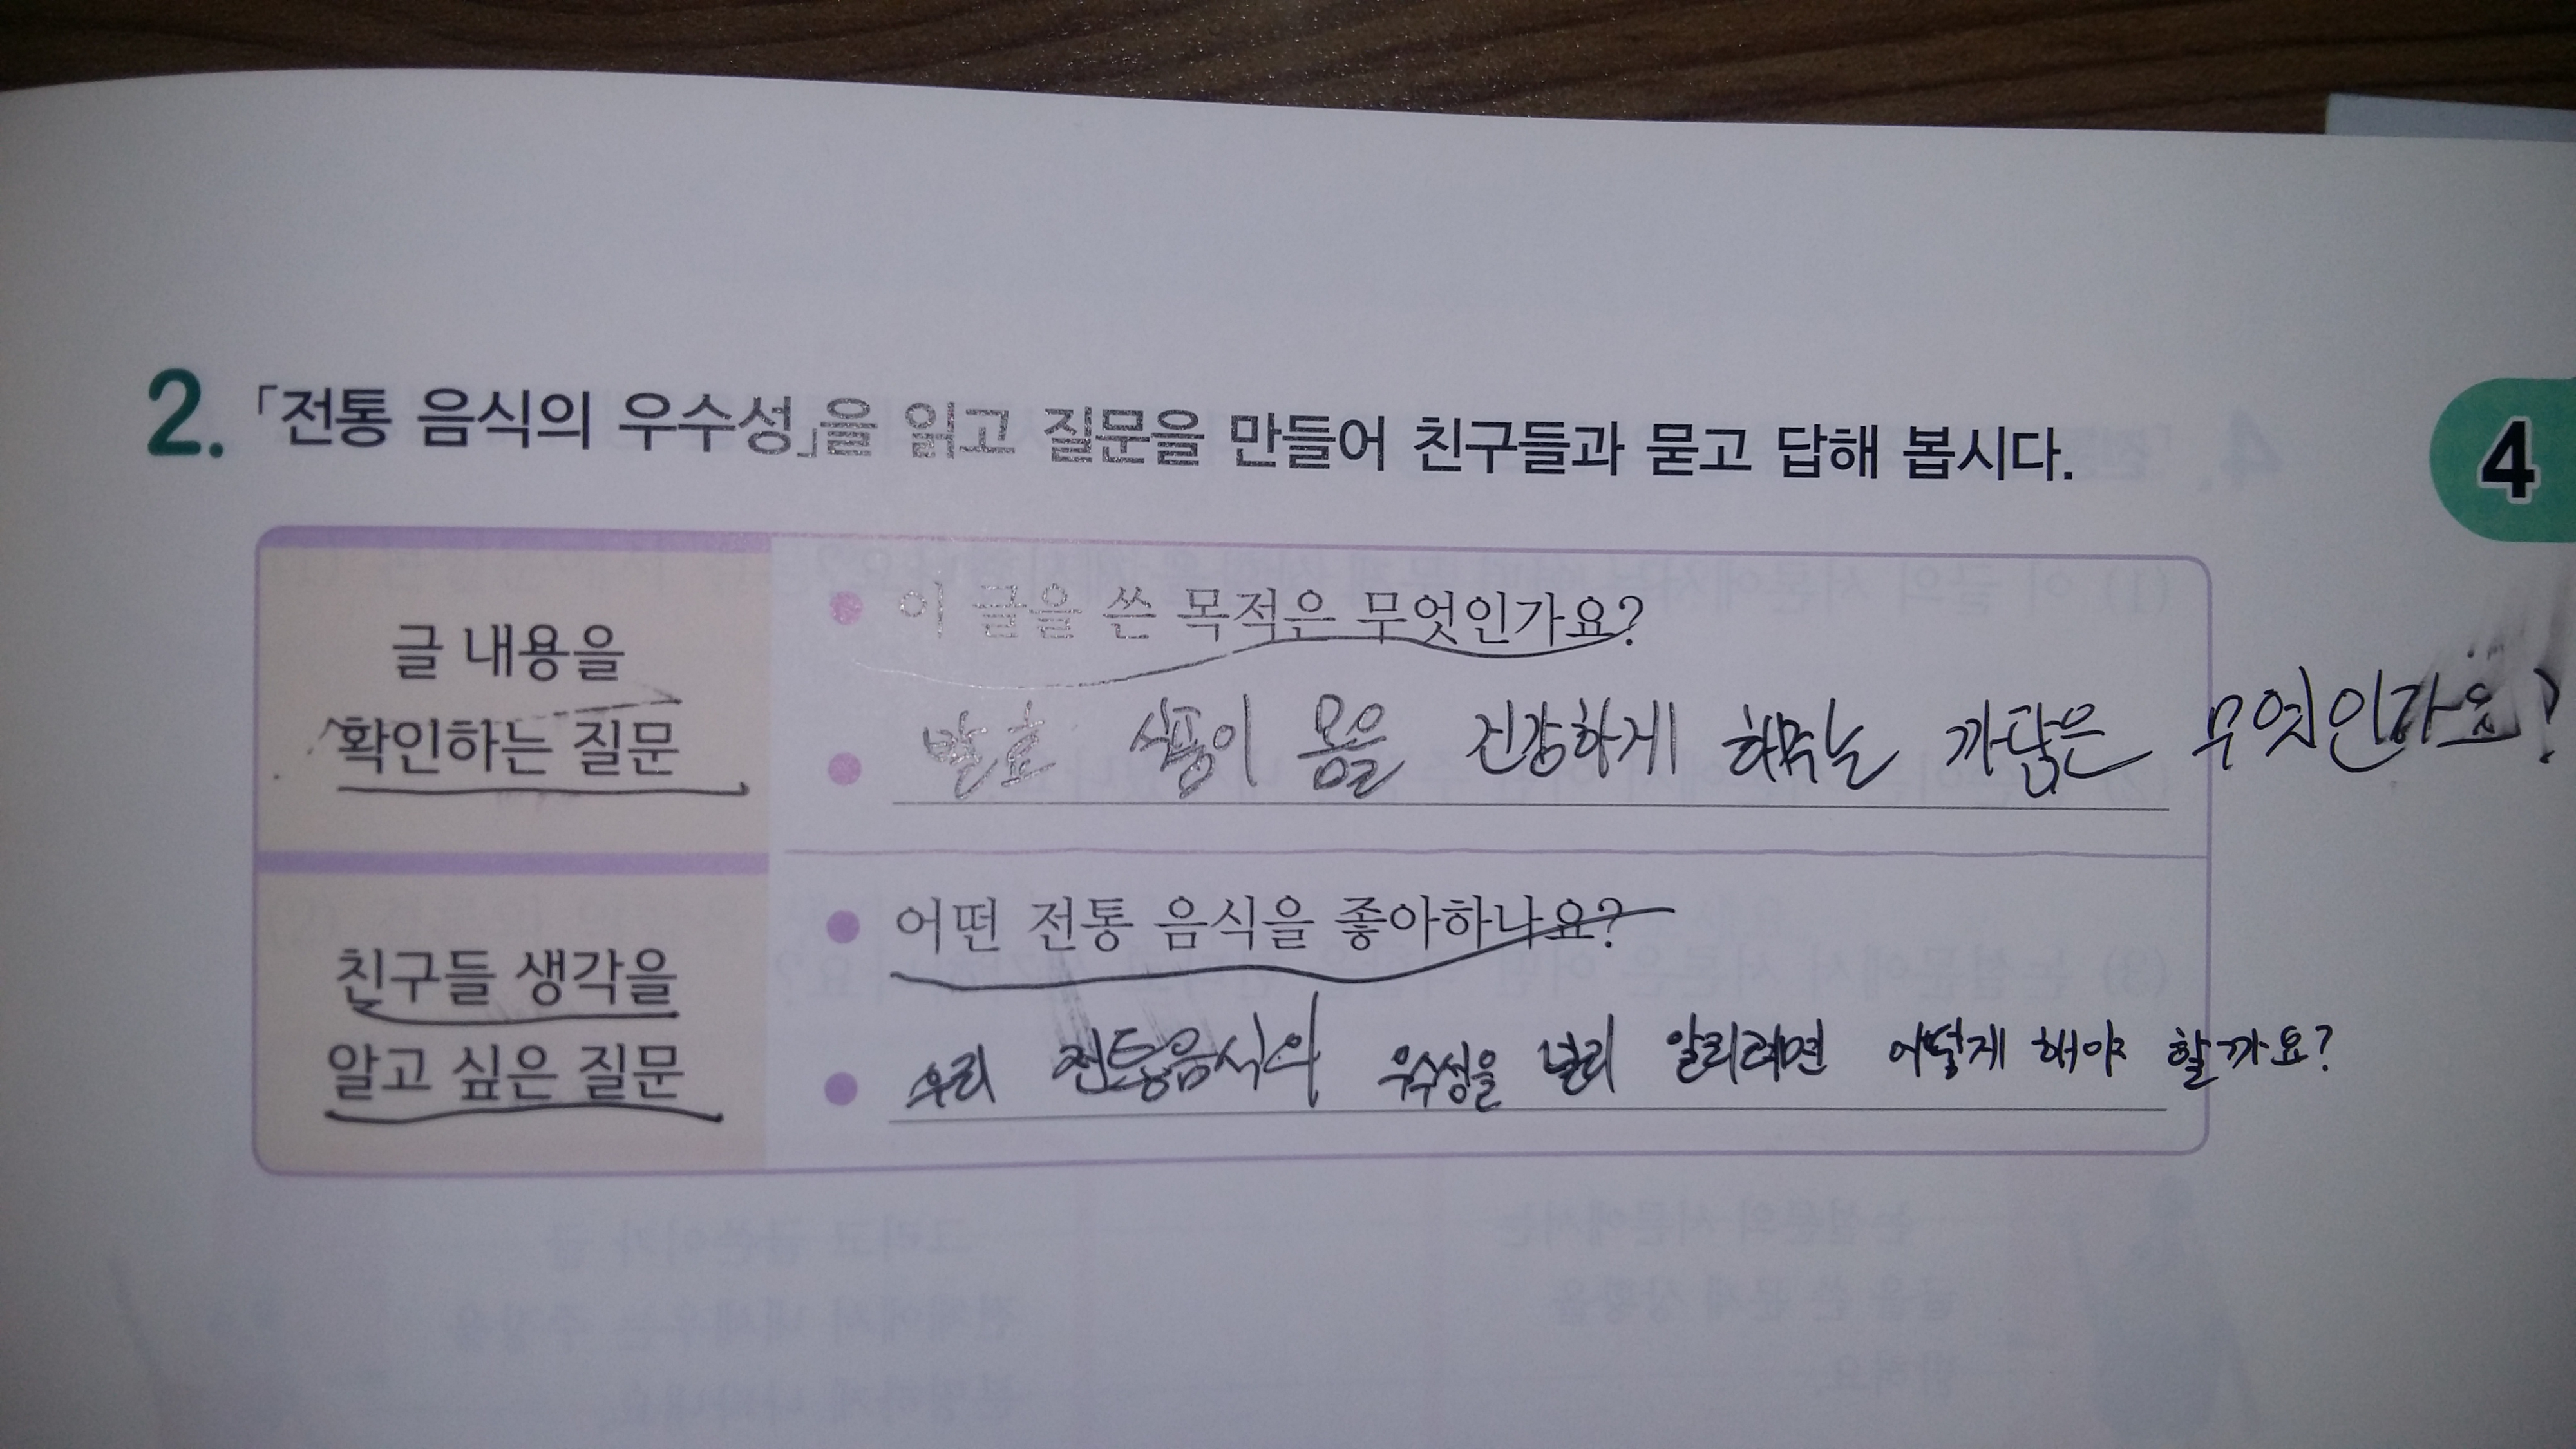 2. 「전통 음식의 우수성」을 읽고 질문을 만들어 친구들과 묻고 답해 봅시다.
4
글 내용을
확인하는 질문
이 글을 쓴 목적은 무엇인가요?
발효 식품이 몸을 건강하게 하는 까닭은 무엇인가요?
친구들 생각을
알고 싶은 질문
어떤 전통 음식을 좋아하나요?
우리 전통음식의 우수성을 널리 알리려면 어떻게 해야 할까요?